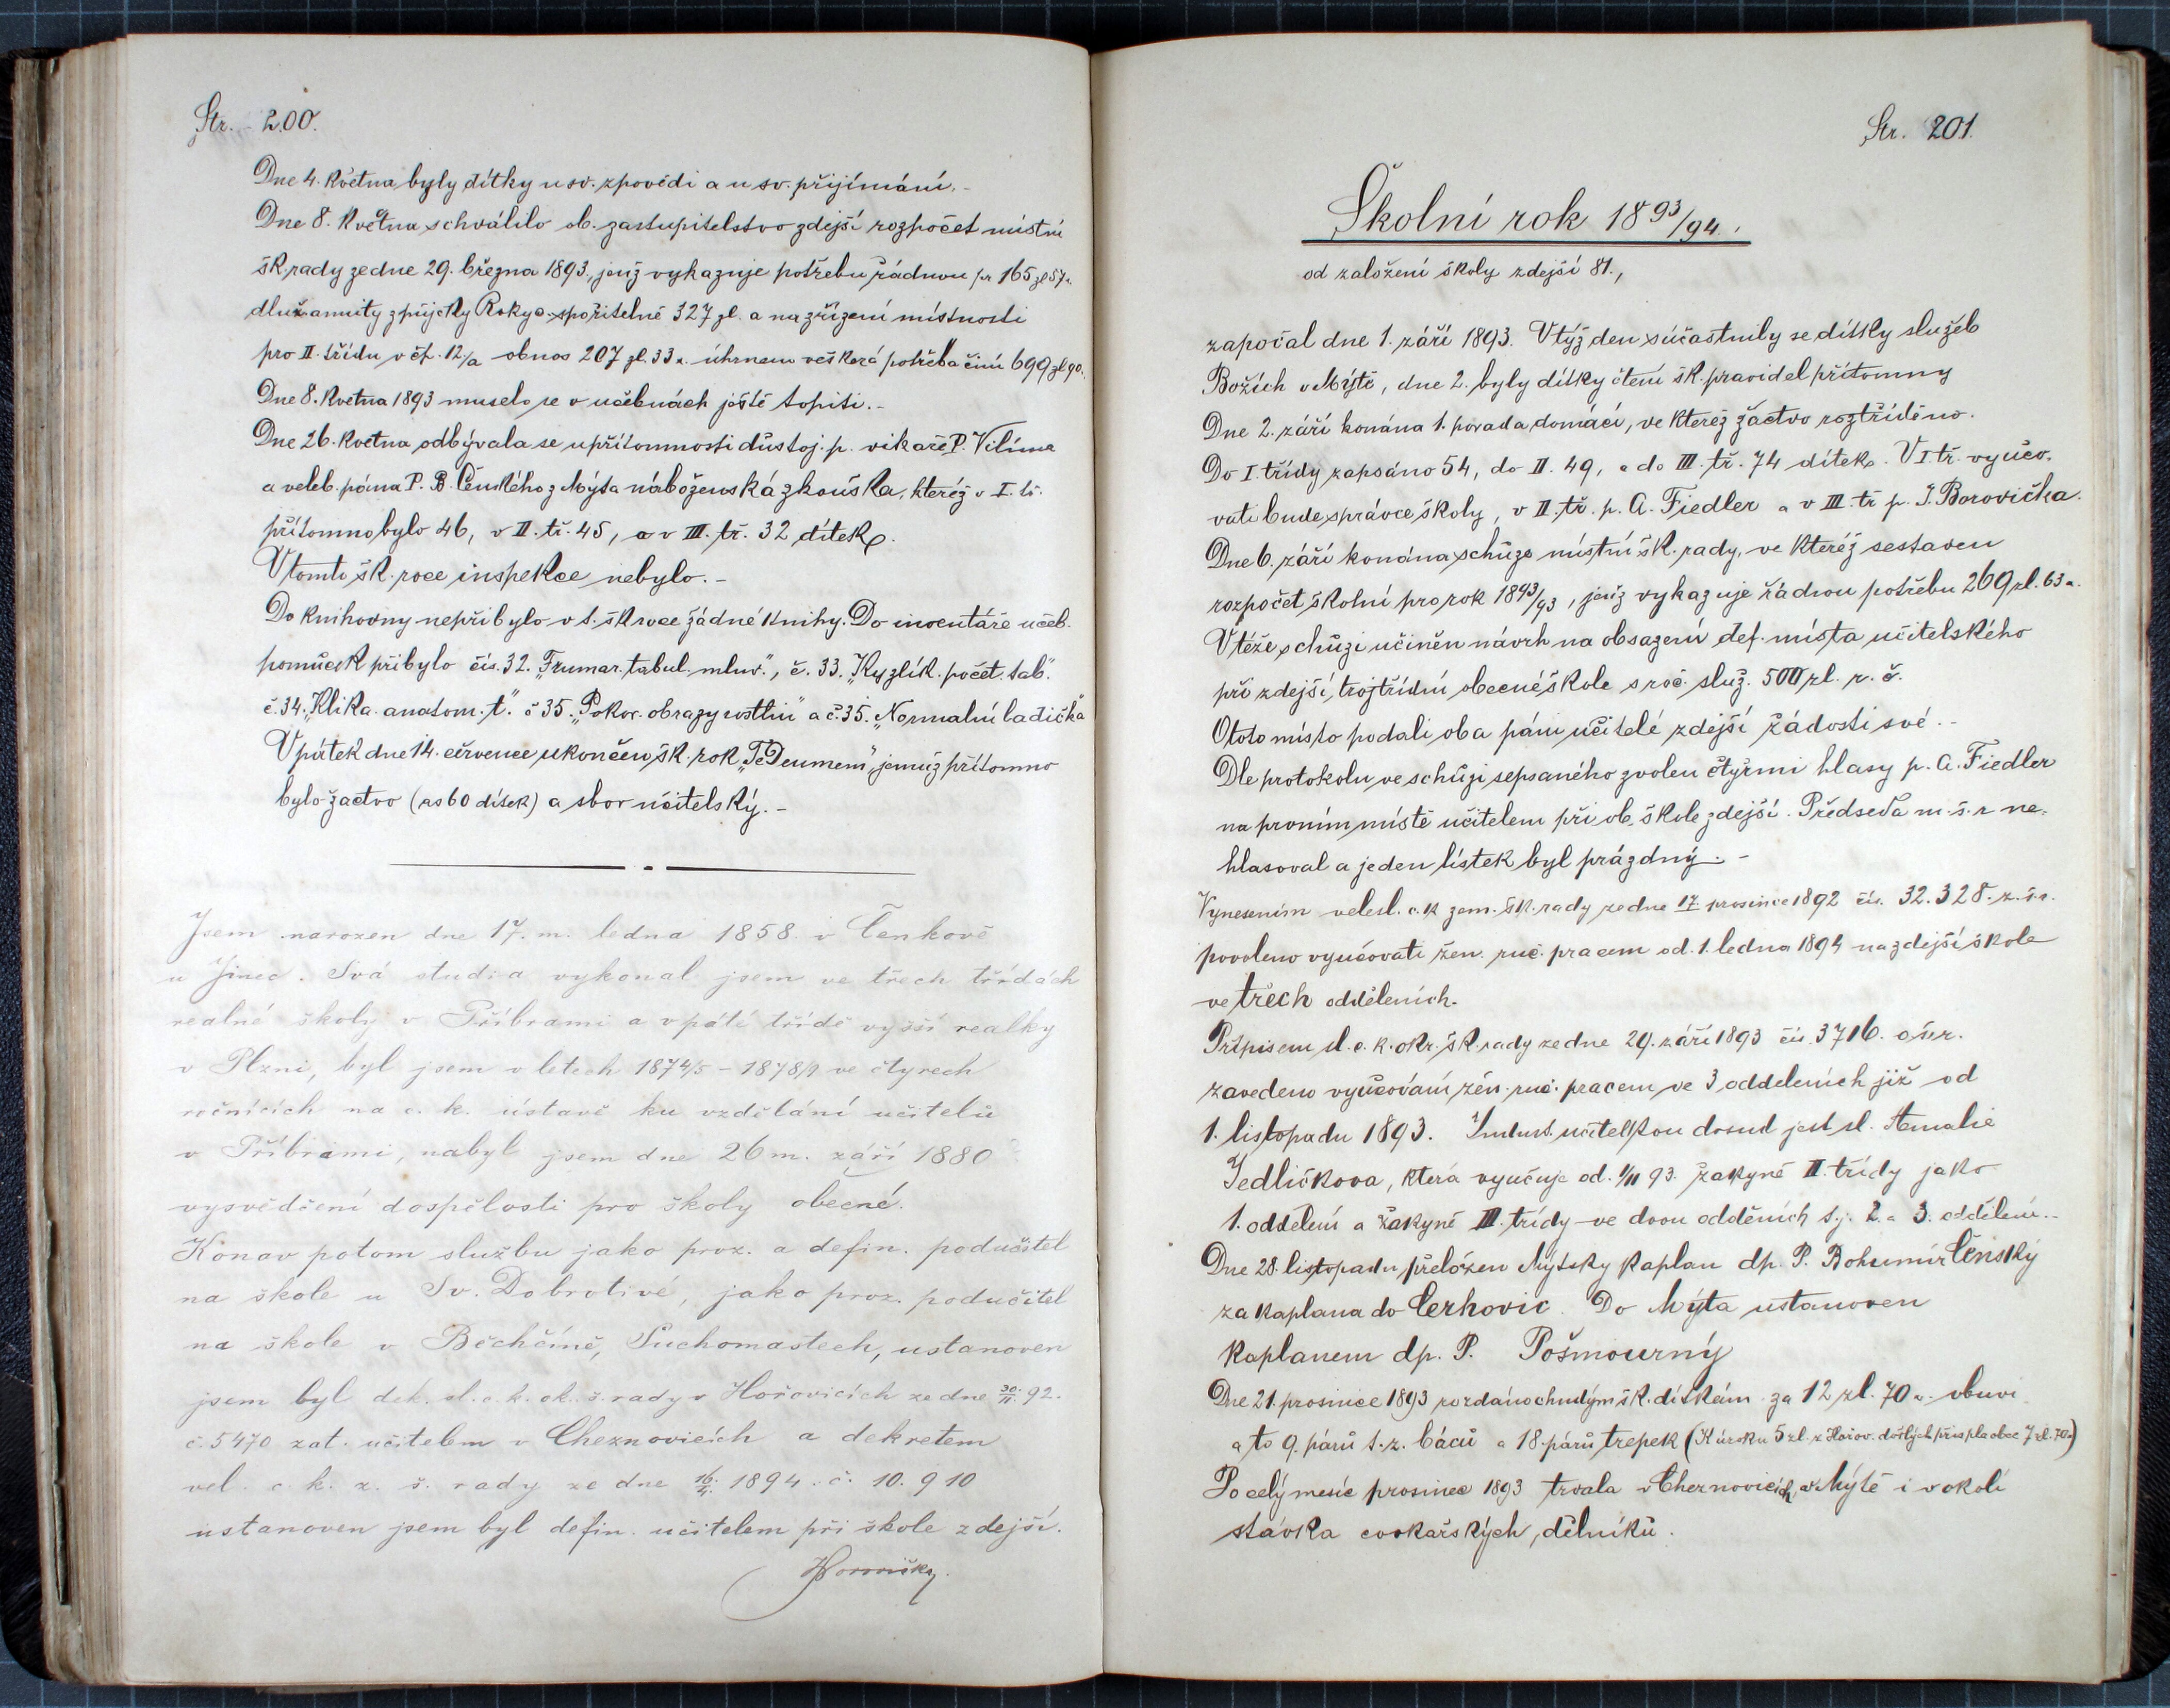 Str. 200.
Dne 4. května byly dítky u sv. zpovědi a u sv. přijímání. -
Dne 8. května schválilo ob. zastupitelstvo zdejší rozpočet místní
šk. rady ze dne 29. března 1893., jenž vykazuje potřebu řádnou pr 165 zl 57 k.
dluž. anuity z půjčky Rokyc. spořitelně 327 zl. a na zřízení místnosti
pro II. třídu v čp. 12/a obnos 207 zl. 33 k. úhrnem veškerá potřeba činí 699 zl 90.
Dne 8. května 1893 muselo se v učebnách ještě topiti. -
Dne 26. května odbývala se u přítomnosti důstoj. p. vikáře P. Vilíma
a veleb. pána P. B. Čenského z Mýta náboženská zkouška, kteréž v I. tř.
přítomno bylo 46, v II. tř. 45, a v III. tř. 32 dítek.
V tomto šk. roce inspekce nebylo. -
Do knihovny nepřibylo v t. šk. roce žádné knihy. Do inventáře učeb.
pomůcek přibylo čís. 32. „Frumar. tabul. mluv.", č. 33. „Kyzlík. počet. tab."
č. 34. „Klika. anatom. t." č 35. „Pokor. obrazy rostlin" a č. 35. „Normalní ladička"
V pátek dne 14. července ukončen šk. rok „Te Deumem", jemuž přítomno
bylo žactvo (as 60 dítek) a sbor učitelský. -
Jsem narozen dne 17. m. ledna 1858 v Čenkově
u Jinec. Svá studia vykonal jsem ve třech třídách
realné školy v Příbrami a v páté třídě vyšší realky
v Plzni, byl jsem v letech 1874/5 - 1878/9 ve čtyrech
ročnících na c. k. ústavě ku vzdělání učitelů
v Příbrami, nabyl jsem dne 26 m. září 1880
vysvědčení dospělosti pro školy obecné.
Konav potom službu jako proz. a defin. podučitel
na škole u Sv. Dobrotivé, jako proz. podučitel
na škole v Běchčíně, Suchomastech, ustanoven
jsem byl dek. sl. c. k. ok. š. rady v Hořovicích ze dne 30/11. 92.
č. 5470 zat. učitelem v Cheznovicích a dekretem
vel. c. k. z. š. rady ze dne 16/4. 1894. č. 10.910
ustanoven jsem byl defin. učitelem při škole zdejší.
JBorovička
Str. 201.
Školní rok 1893/94.,
od založení školy zdejší 81.,
započal dne 1. září 1893. V týž den súčastnily se dítky služeb
Božích v Mýtě, dne 2. byly dítky čtení šk. pravidel přítomny
Dne 2. září konána 1. porada domácí, ve kteréž žactvo roztříděno.
Do I. třídy zapsáno 54, do II. 49, a do III. tř. 74 dítek. V I tř. vyučo-
vati bude správce školy, v II. tř. p. A. Fiedler a v III. tř p. J. Borovička.
Dne 6. září konána schůze místní šk. rady, ve kteréž sestaven
rozpočet školní pro rok 1893/93, jenž vykazuje řádnou potřebu 269 zl. 63 k.
V téže schůzi učiněn návrh na obsazení def. místa učitelského
při zdejší trojtřídní obecné škole s roč. služ. 500 zl. r. č.
O toto místo podali oba páni učitelé zdejší žádosti své. -
Dle protokolu ve schůzi sepsaného zvolen čtyřmi hlasy p. A. Fiedler
na prvním místě učitelem při ob. škole zdejší. Předseda m. š. r ne-
hlasoval a jeden lístek byl prázdný. -
Vynesením velesl. c. k zem. šk. rady ze dne 17. prosince 1892 čís. 32.328. z. š. r.
povoleno vyučovati žen. ruč. pracem od. 1. ledna 1894 na zdejší škole
ve třech odděleních.
Přípisem sl. c. k. okr. šk. rady ze dne 29. září 1893 čís. 3716. o š r.
zavedeno vyučování žen. ruč. pracem ve 3 odděleních již od
1. listopadu 1893. Indust. učitelkou dosud jest sl. Amalie
Jedličkova, která vyučuje od. 1/11 93. žakyně II. třídy jako
1. oddělení a žakyně III. třídy - ve dvou odděních t. j. 2. a 3. oddělení. -
Dne 28. listopadu přeložen Mýtský kaplan dp. P. Bohumír Čenský
za kaplana do Cerhovic. Do Mýta ustanoven
kaplanem dp. P. Pošmourný
Dne 21. prosince 1893 rozdáno chudým šk. dítkám za 12 zl. 70 k. obuvi
a to 9. párů t. z. báců a 18. párů trepek (K úroku 5 zl. z Hořov. došlých přispla obec 7 zl. 70 k)
Po celý mesíc prosinec 1893 trvala v Chernovicích, v Mýtě i v okolí
stávka cvokařských dělníků.